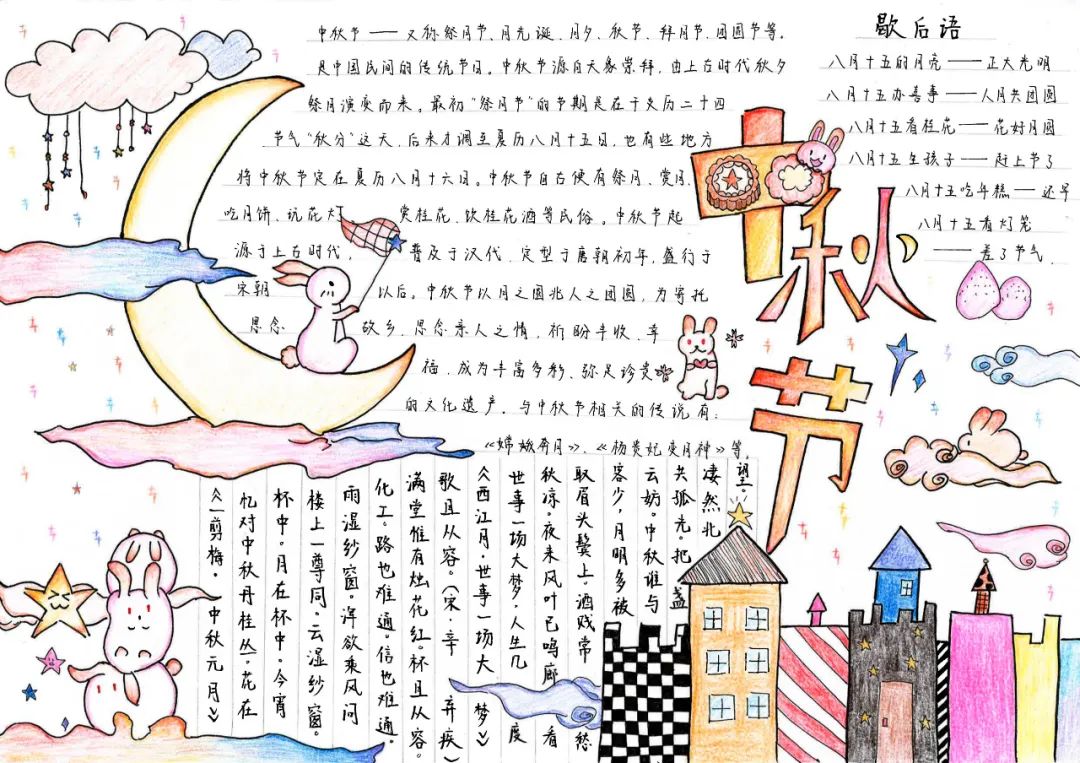 中秋节——又称祭月节、月光诞、月夕、秋节、拜月节、团圆节等。
是中国民间的传统节日。中秋节源自天象崇拜，由上古时代秋夕
祭月演变而来。最初“祭月节”的节期是在干支历二十四
节气“秋分”这天，后来才调至夏历八月十五日，也有些地方
将中秋节定在夏历八月十六日。中秋节自古便有祭月、赏月、
吃月饼、玩花灯、赏桂花、饮桂花酒等民俗。中秋节起
源于上古时代，普及于汉代，定型于唐朝初年，盛行于
宋朝以后。中秋节以月之圆兆人之团圆，为寄托
思念故乡，思念亲人之情，祈盼丰收、幸
福，成为丰富多彩、弥足珍贵
的文化遗产。与中秋节相关的传说有：
《嫦娥奔月》、《杨贵妃变月神》等。
歇后语
八月十五的月亮——正大光明
八月十五办喜事——人月共团圆
八月十五看桂花——花好月圆
八月十五生孩子——赶上节了
八月十五吃年糕——还早
八月十五看灯笼
——差了节气.
中秋节
《一剪梅·中秋元月》
忆对中秋丹桂丛。花在
杯中。月在杯中。今宵
楼上一尊同。云湿纱窗。
雨湿纱窗。浑欲乘风问
化工。路也难通。信也难通。
满堂惟有烛花红。杯且从容。
歌且从容。（宋·辛弃疾）
《西江月·世事一场大梦》
世事一场大梦，人生几度
秋凉。夜来风叶已鸣廊看
取眉头鬓上。酒贱常愁
客少，月明多被
云妨。中秋谁与
共孤光。把盏
凄然北
望。